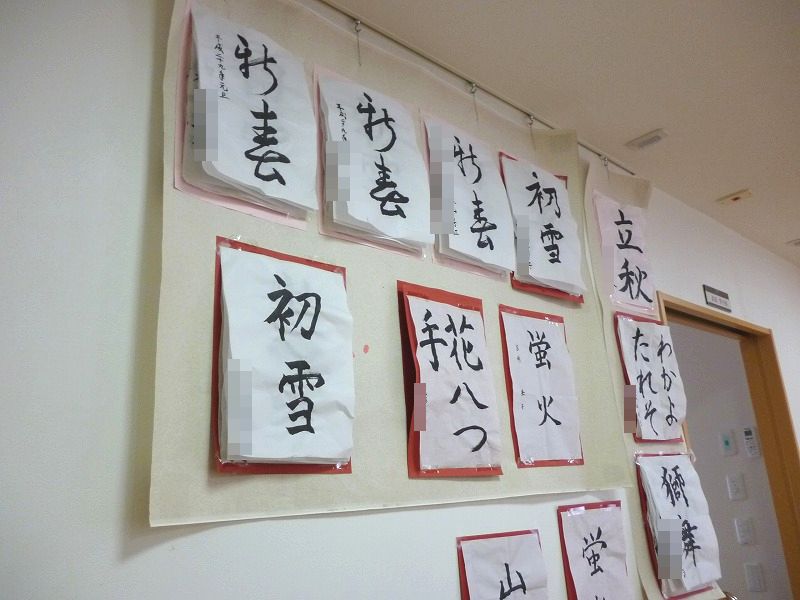 新春
平成二十九年元旦
新春
新春
初雪
立秋
初雪
花八つ
手
蛍火
わかよ
たれそ
獅舞
山
蛍